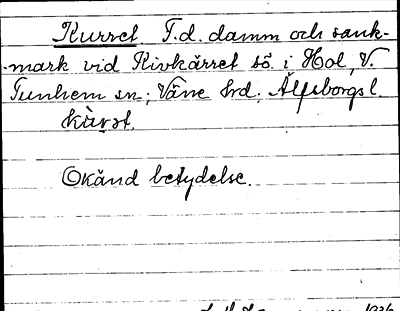 Kurret. F.d. damm och sank-
mark vid Kivkärret sö. i Hol, V.
Tunhem sn; Väne hrd; Älfsborgs l.
Okänd betydelse.
1936